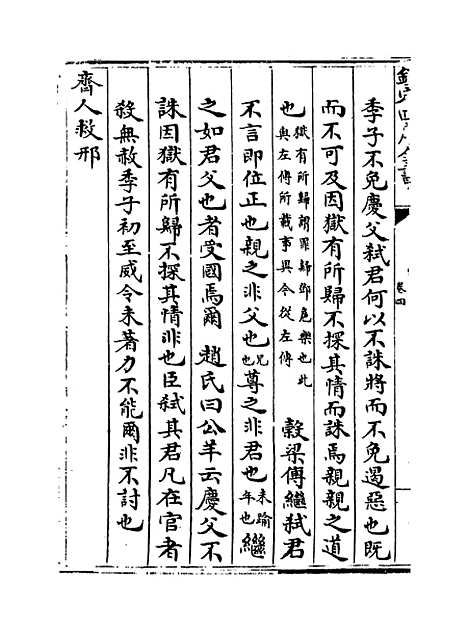 欽定四庫全書
卷四
季子不免慶父弑君何以不誅將而不免遏惡也既
而不可及因獄有所歸不探其情而誅焉親親之道
也獄有所歸謂罪歸鄧扈樂也此
與左傳所載事異今從左傳
穀梁傳繼弑君
不言即位正也親之非父也兄
也尊之非君也未踰
年也繼
之如君父也者受國焉爾 趙氏曰公羊云慶父不
誅因獄有所歸不探其情非也臣弑其君凡在官者
殺無赦季子初至威令未著力不能爾非不討也
齊人救邢